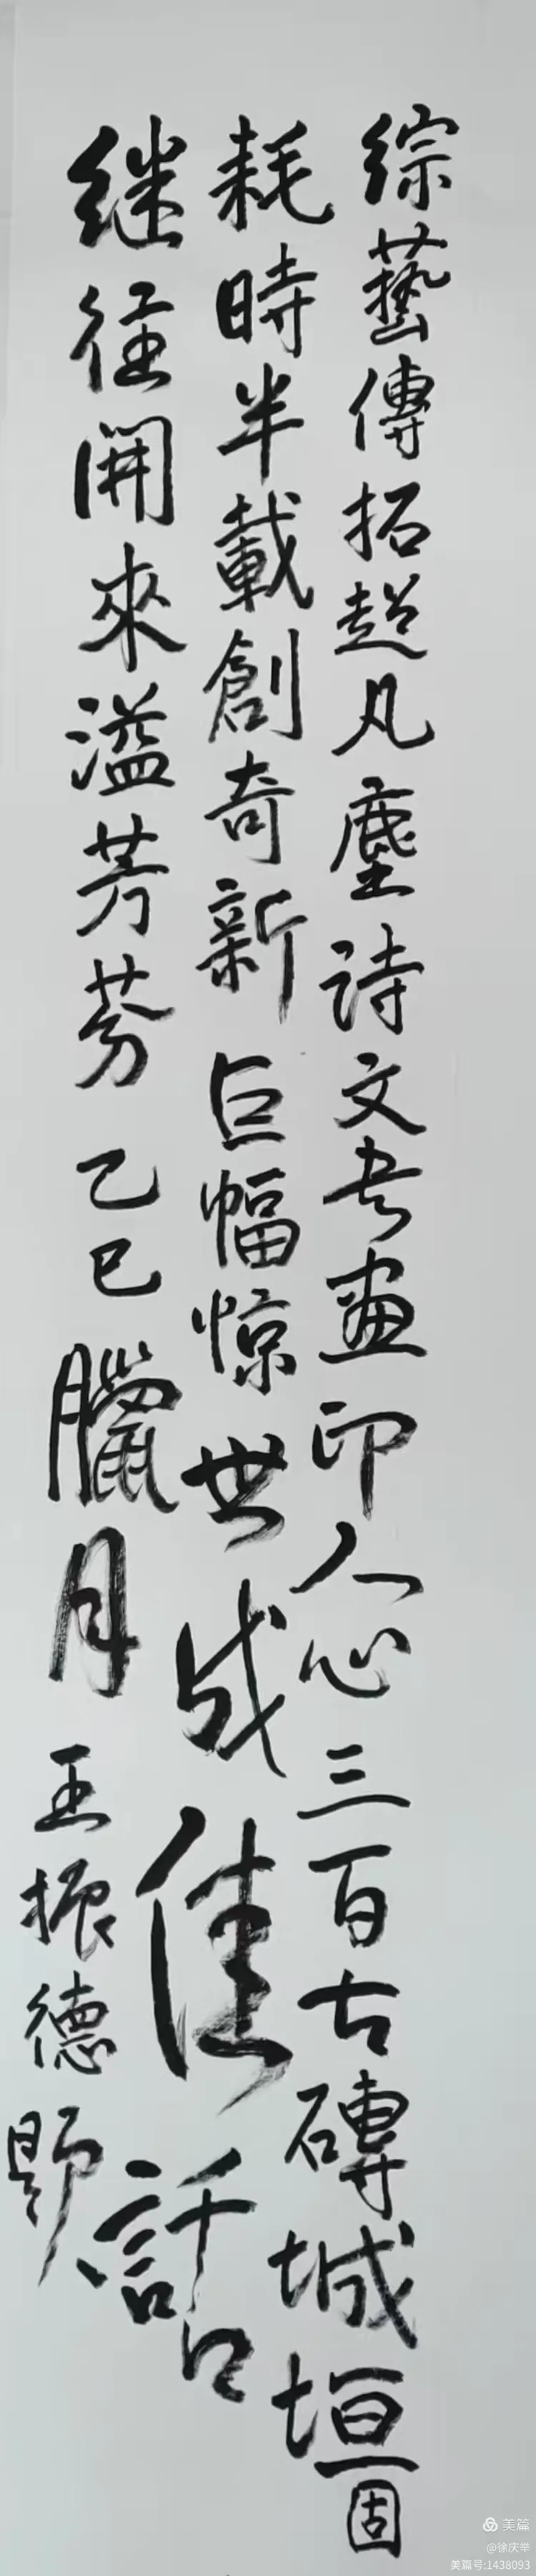 综藝傳拓超凡塵诗文书画印人心三百古磚城垣固
耗時半載創奇新巨幅惊世成佳話
继往開來溢芳芬乙巳臘月王振德题
美篇
@徐庆举
美篇号:1438093